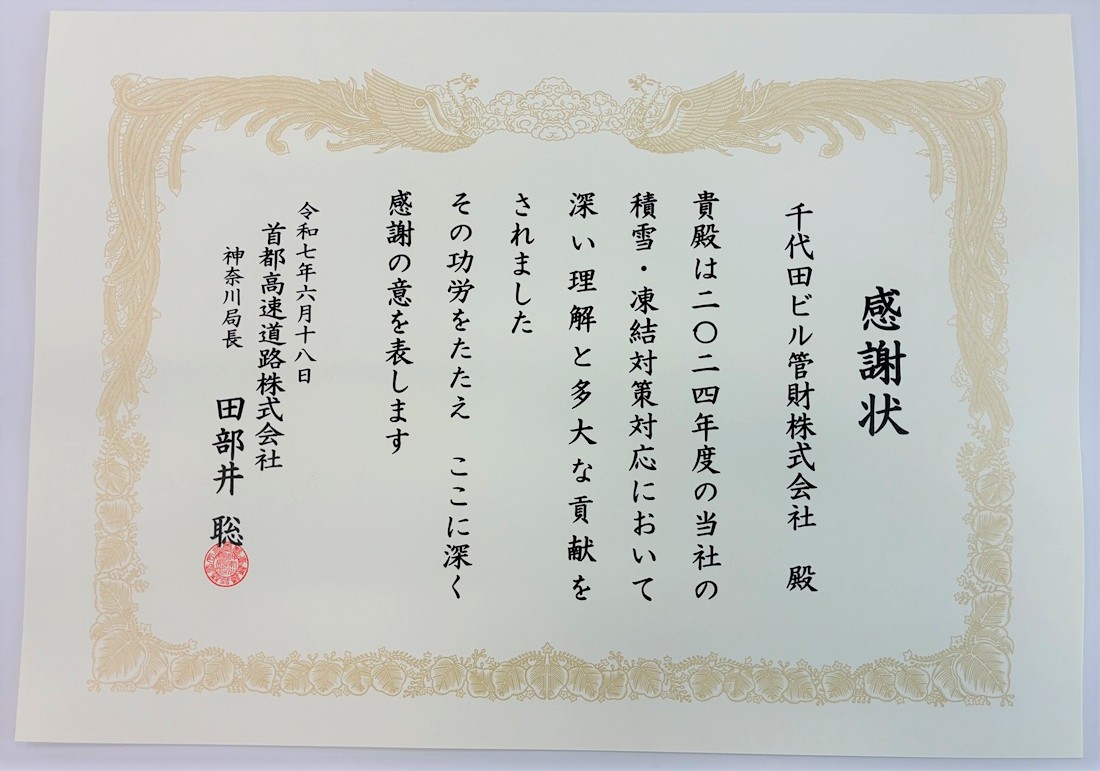 感謝状
千代田ビル管財株式会社　殿
貴殿は二〇二四年度の当社の
積雪・凍結対策対応において
深い理解と多大な貢献を
されました
その功労をたたえ　ここに深く
感謝の意を表します
令和七年六月十八日
首都高速道路株式会社
神奈川局長　田部井　聡